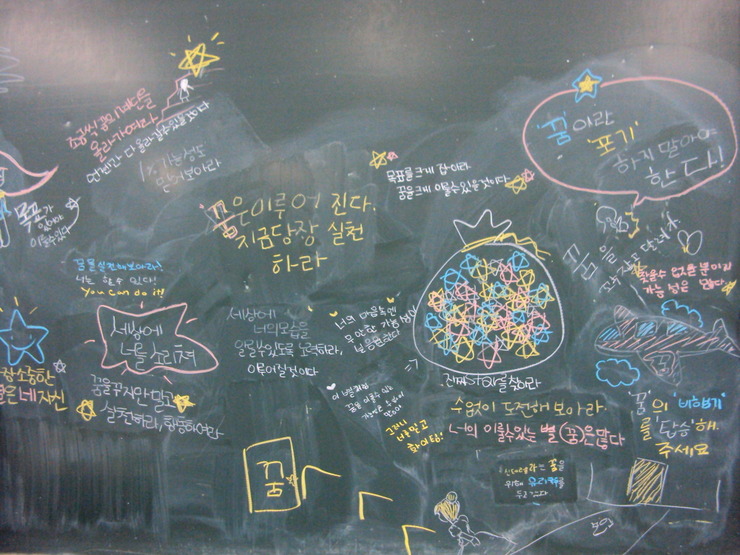 조금씩 꿈의 계단을
올라가여라
언젠간 다 올라갈수있을것이다
1% 가능성도
믿어보아라
꿈은이루어 진다.
지금당장 실천
하라
목표를크게 잡아라
꿈을크게 이룰수있을것이다
'꿈'이란
'포기'
하지 말아야
한 다!
목표가
있어야
이룰수있다
꿈을실천해보아라!
너는 할수 있다!
You can do it!
세상에
너를 소리쳐
꿈을꾸지만 말고
실천하라, 행동하여라
세상에
너의모습을
알릴수있도록 노력하라,
이루어질것이다
너의 마음속엔
무한한 가능성이
가능성은 많다
진짜 를찾아라
수없이 도전해 보아라.
너의 이룰수있는 별(꿈)은많다
그러니
너를믿고
화이팅!
꿈
'꿈'의 '비행기'
를 '탑승' 해.
주세요
신데렐라는 꿈을
위해 유리구두를